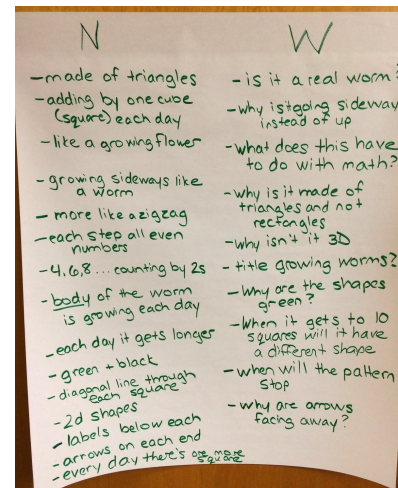 N
- made of triangles
- adding by one cube
(square) each day
- like a growing flower
- growing sideways like
a worm
- more like a zigzag
- each step all even
numbers
- 4, 6, 8 ... counting by 2s
- body of the worm
is growing each day
- each day it gets longer
- green + black
- diagonal line through
each square
- 2d shapes
- labels below each
- arrows on each end
- every day there's one more
square
W
- is it a real worm?
- why is it going sideway
instead of up
- what does this have
to do with math?
- why is it made of
triangles and not
rectangles
- why isn't it 3D
- title growing worms?
- why are the shapes
green?
- when it gets to 10
squares will it have
a different shape
- when will the pattern
stop
- why are arrows
facing away?